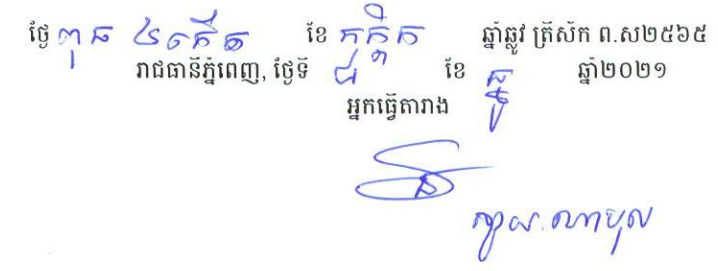 ថ្ងៃ ពុធ ៤កើត ខែ កត្តិក ឆ្នាំឆ្លូវ ត្រីស័ក ព.ស២៥៦៥
រាជធានីភ្នំពេញ, ថ្ងៃទី ៨ ខែ ធ្នូ ឆ្នាំ២០២១
អ្នកធ្វើតារាង
ណាបុល